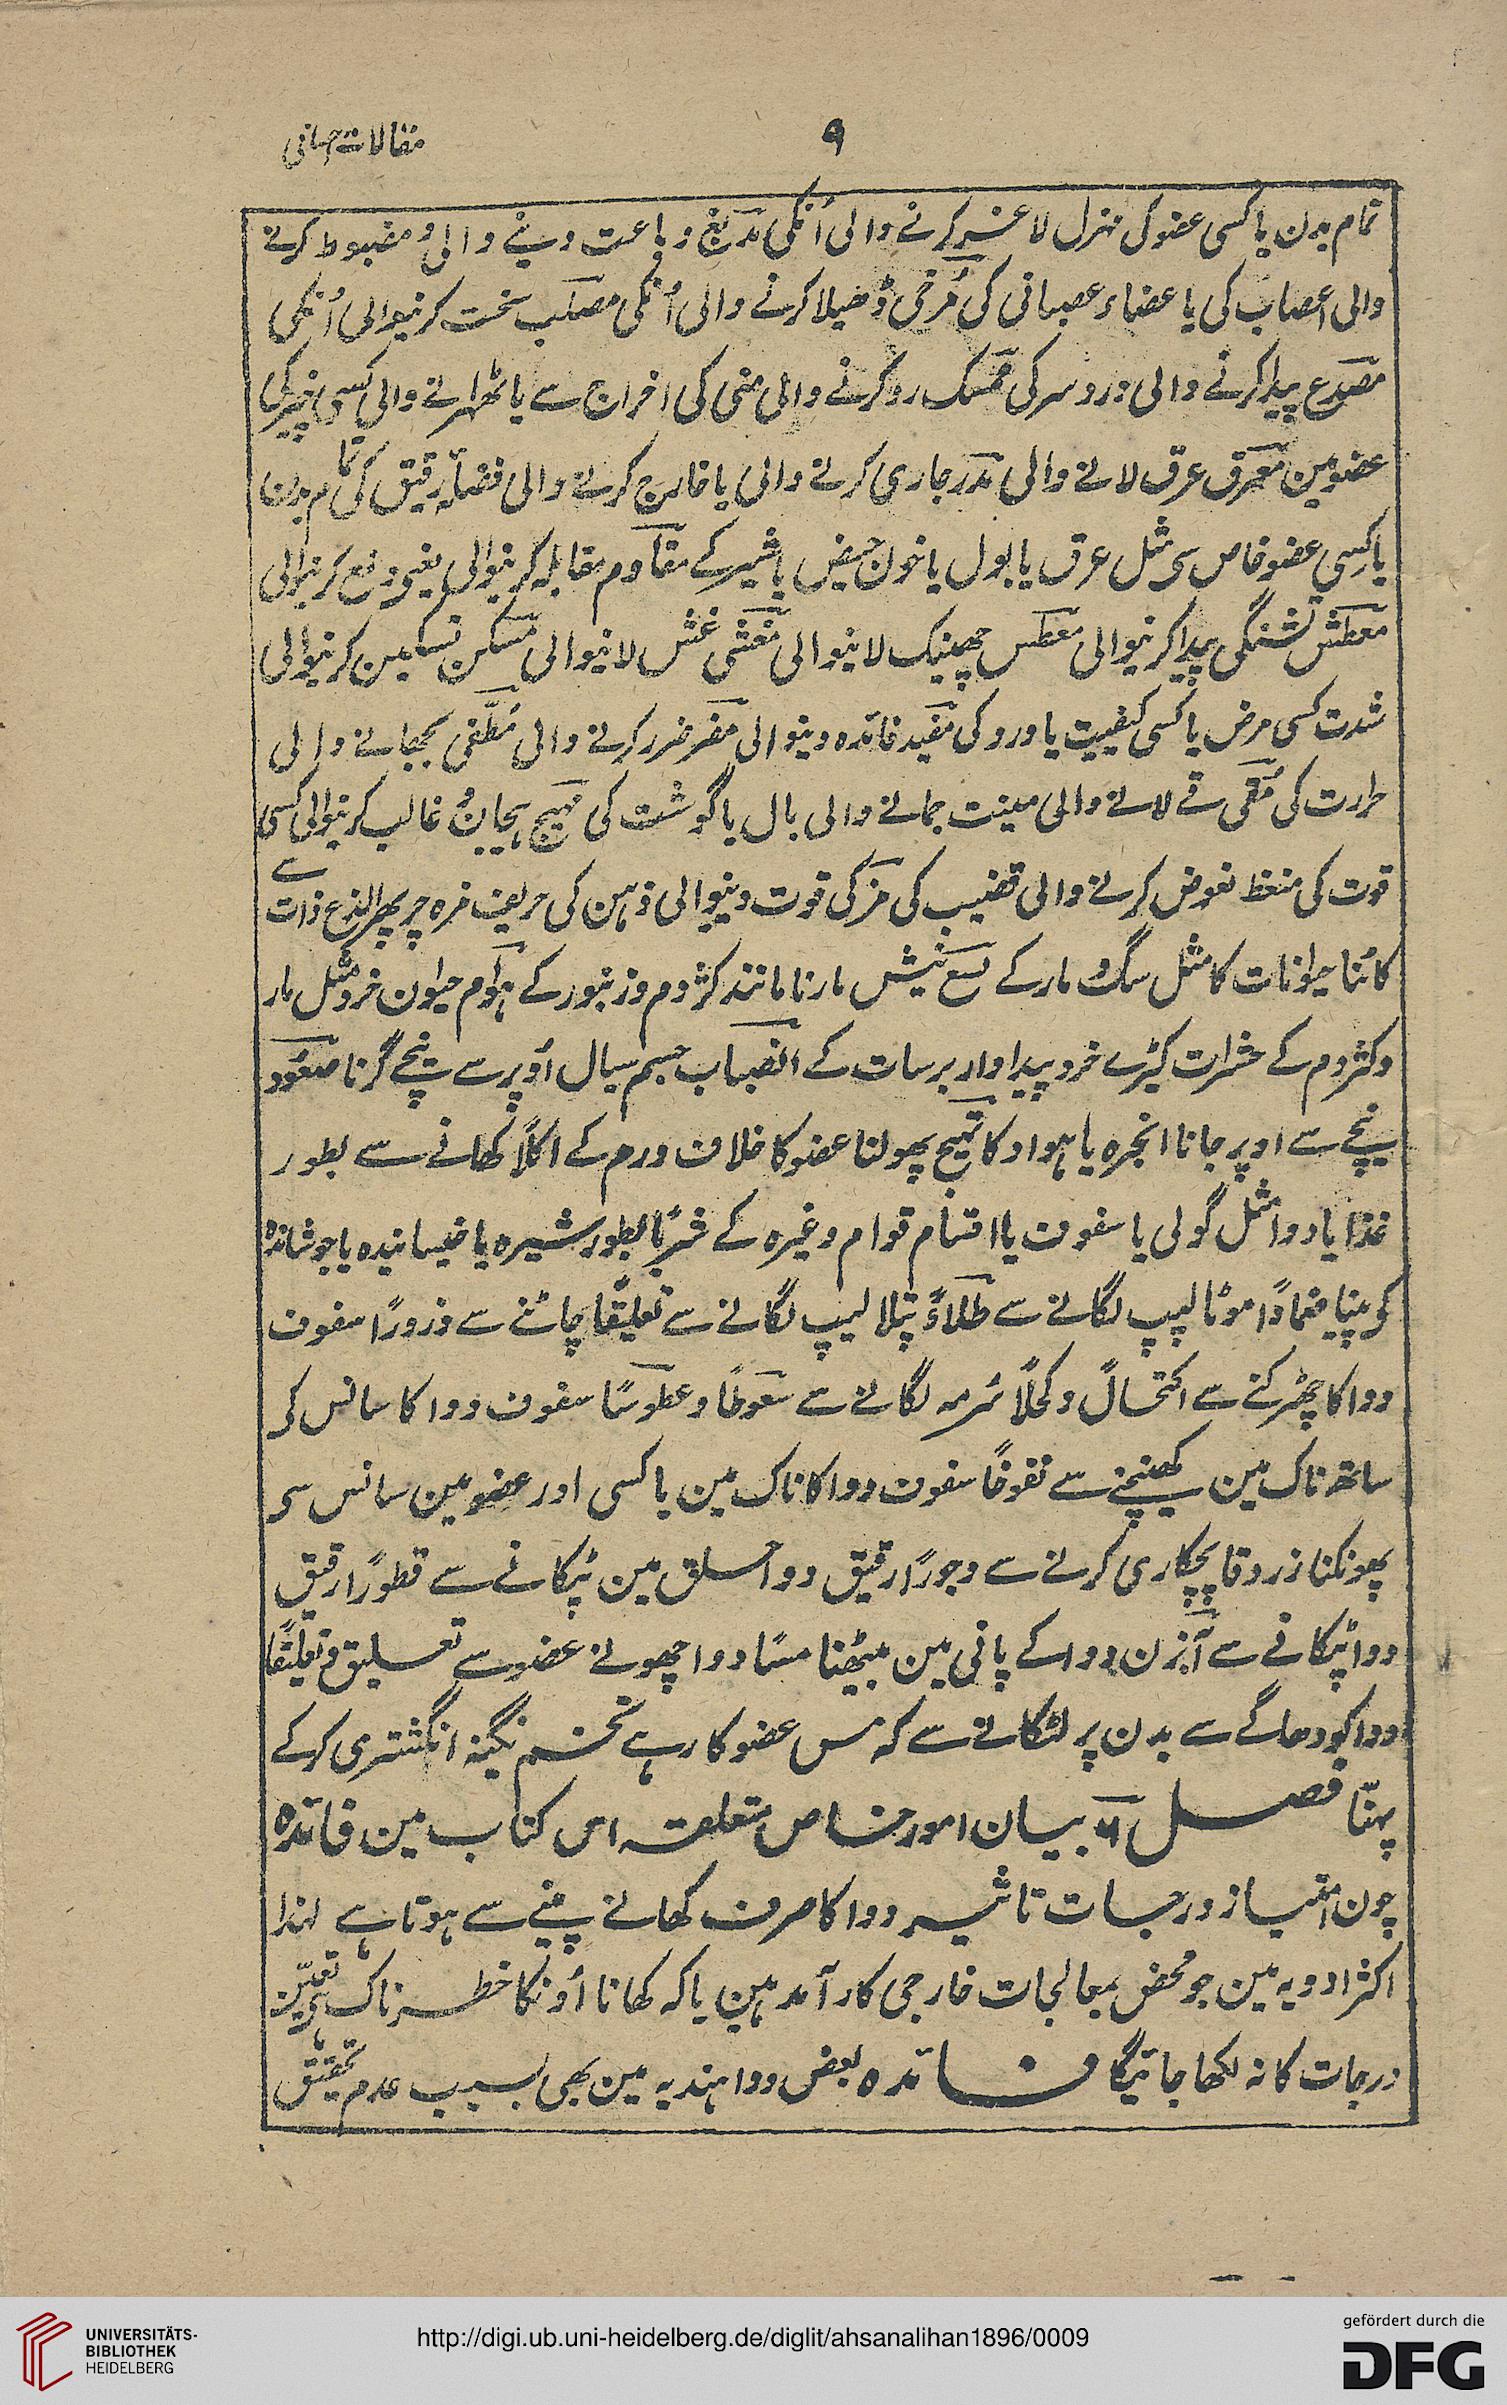 ٩
مقالات احسانی
تمام بدن یا کسی عضو کی مہزل لاغر کرنے والی اُنکی مدبغ دباغت دینے والی و مضبوط کرنے
والی اعصاب کی یا اعضاء عصبانی کی مُرخی ڈھیلا کرنے والی اُنکی مصلب سخت کرنیوالی اُنکی
مصدع پیدا کرنے والی دردسر کی ممسک روکرنے والی منی کی اخراج سے یا ٹھرانے والی کسی چیز کی
عضو مین معرق عرق لانے والی مدر جاری کرنے والی یا خارج کرنے والی فضلہ رقیق کی تمام بدن
یا کسی عضو خاص سی مثل عرق یا بول یا خون حیض یا شیر کے مقاوم مقابلہ کرنیوالی یعنی دفع کرنیوالی
معطش تشنگی پیدا کرنیوالی معطس چھینک لانیوالی مغشی غش لانیوالی مسکن تسکین کرنیوالی
شدت کسی مرض یا کسی کیفیت یا درد کی مفید فائدہ دینوالی مضر ضرر کرنے والی مُطفی بجھانے والی
حرارت کی مُقی قے لانے والی مینت جمانے والی بال یا گوشت کی مہیج ہیجان و غالب کرنیوالی کسی
قوت کی منعظ نعوض کرنے والی قضیب کی مزکی قوت دینوالی ذہن کی حریف مزہ چرپھرا لذع ذات سے
کاٹنا حیوانات کا مثل سگ و مار کے لسع نیش مارنا مانند کژدم و زنبور کے ہوام حیوان خرد مثل مار
و کژدم کے حشرات کیڑے خرد پیداوار برسات کے انصباب جسم سیال اُوپر سے نیچے گرنا صعود
نیچے سے اوپر جانا انجرہ یا ہوا و کا تہیج پھولنا عضو کا خلاف ورم کے اکلاً کھانے سے بطور
غذا یا دوا مثل گولی یا سفوف یا اقسام قوام وغیرہ کے شرباً بطور شیرہ یا خیساندہ یا جوشاندہ
کو پینا ضماداً موٹا لیپ لگانے سے طلاءً پتلا لیپ لگانے سے تعلیقاً چاٹنے سے ذروراً سفوف
دوا کا چھڑکنے سے اکتحالً و کحلاً سُرمہ لگانے سے سعوطاً و عطوساً سفوف دوا کا سانس کی
ساتھ ناک مین کھینچنے سے نفوخاً سفوف دوا کا ناک مین یا کسی اور عضو مین سانس سی
پھونکنا زروقا پچکاری کرنے سے وجوراً رقیق دوا حلق مین ٹپکانے سے قطوراً رقیق
دوا ٹپکانے سے آبزن دوا کے پانی مین بیٹھنا مساً دوا چھونے عضو سے تعلیق و تعلیقاً
دوا کو دھاگے سے بدن پر لٹکانے سے کہ مس عضو کا رہے تختم نگینہ انگشتری کر کے
پہننا فصل بیان امور خاص متعلقہ اس کتاب مین فائدہ
چون امتیاز درجات تاثیر دوا کا صرف کھانے پینے سے ہوتا ہے لہذا
اکثر ادویہ مین جو محض بمعالجات خارجی کار آمد ہین یا کہ کھانا اُونکا خطرناک ہی تعین
درجات کا نہ لکھا جائیگا فائدہ بعض دوا ہندیہ مین بھی بسبب عدم تحقیق
UNIVERSITÄTS-
BIBLIOTHEK
HEIDELBERG
http://digi.ub.uni-heidelberg.de/diglit/ahsanalihan1896/0009
gefördert durch die
DFG